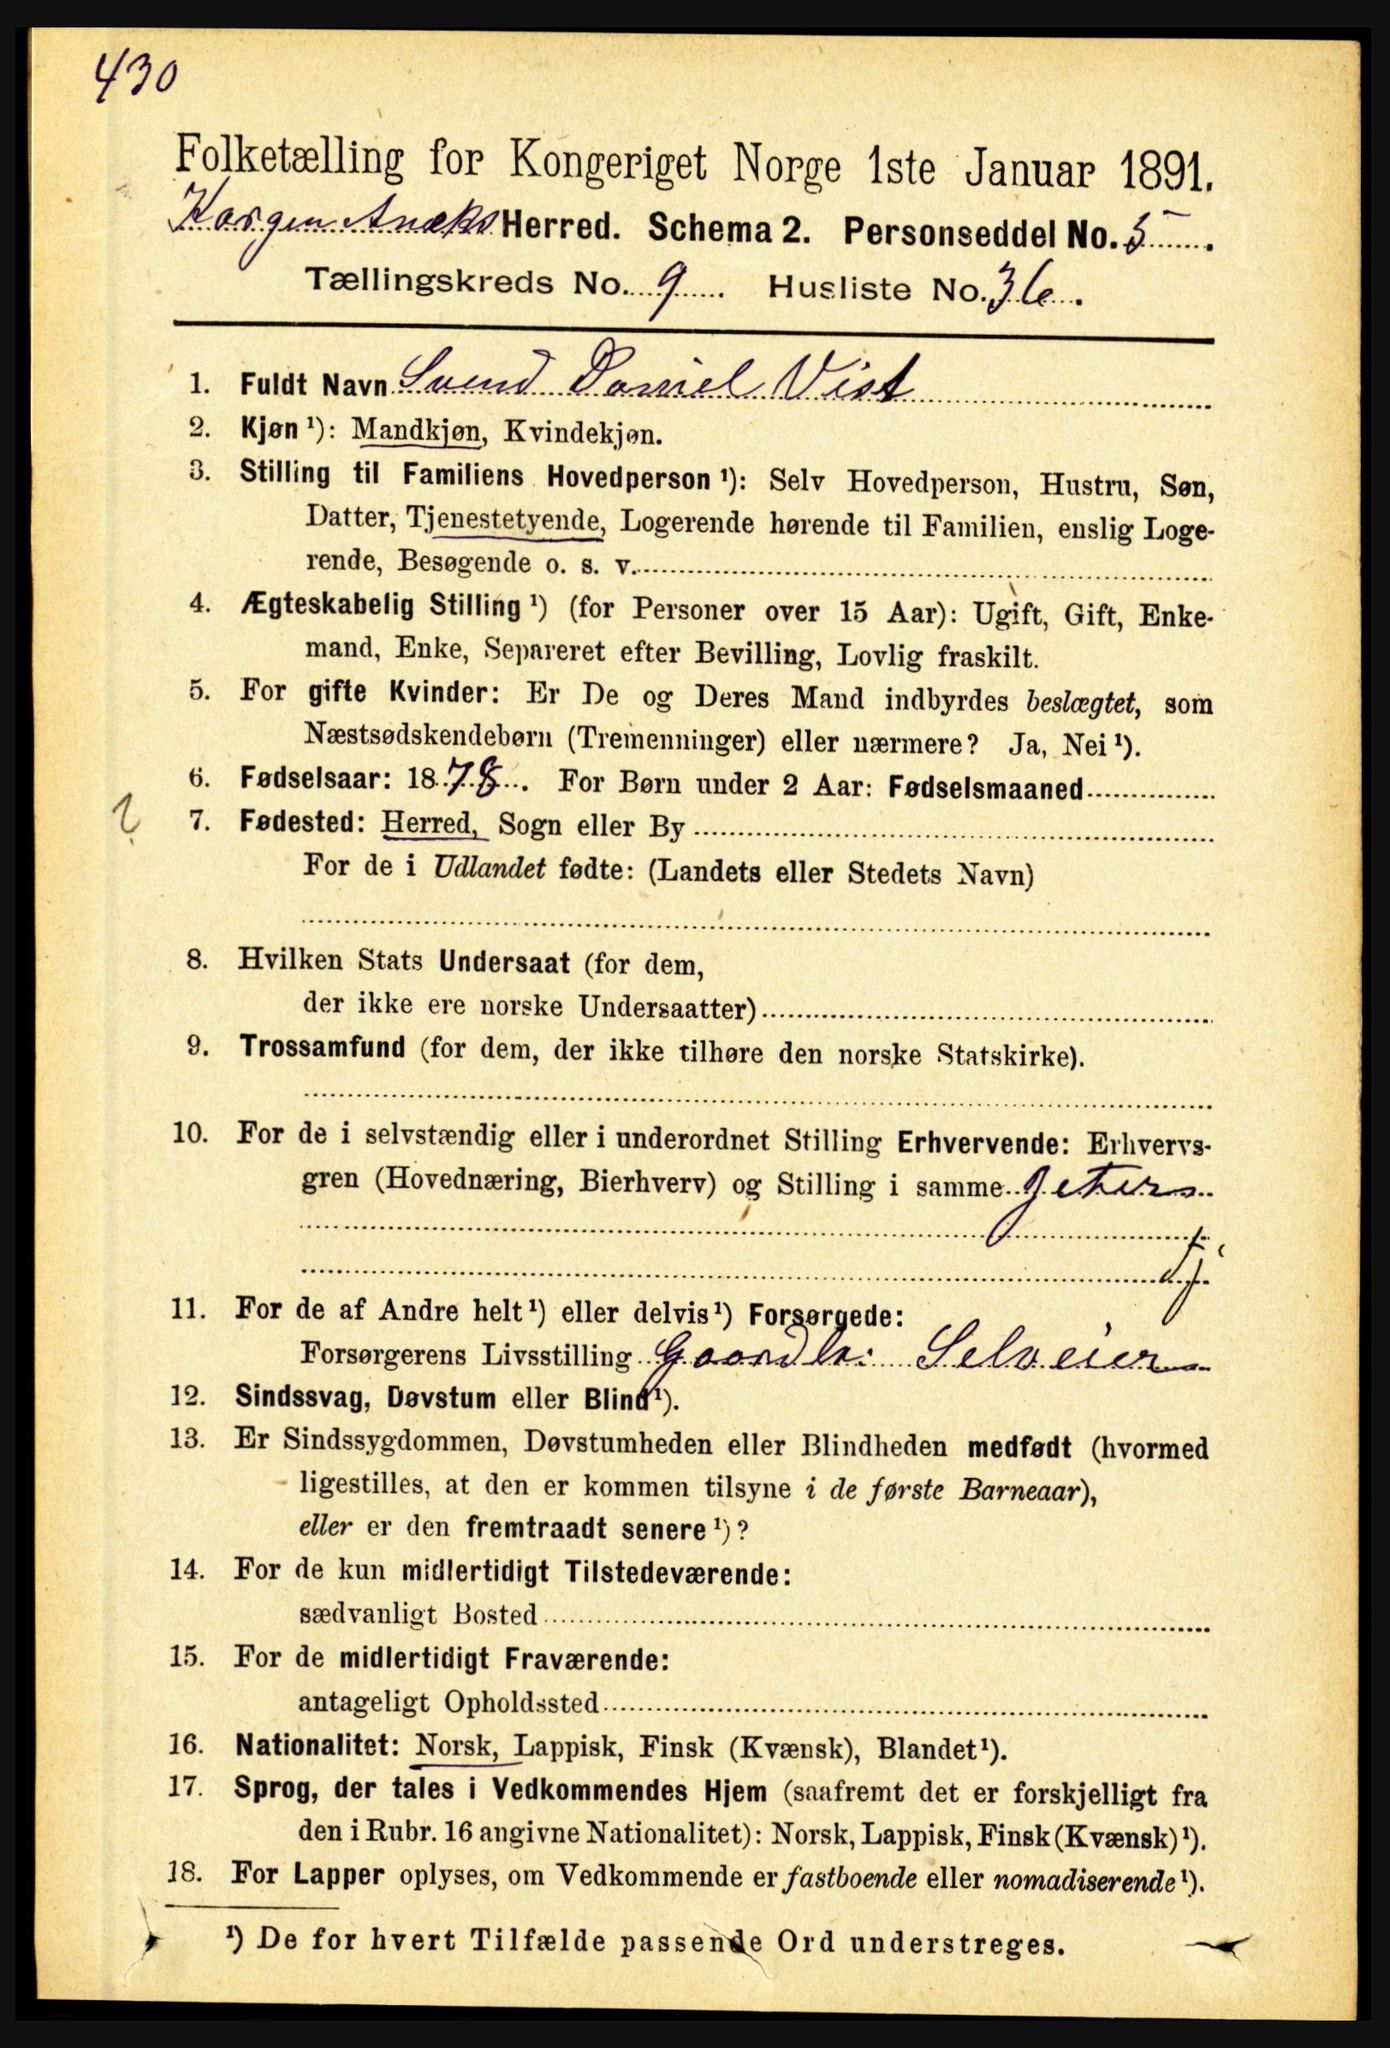 430
Folketælling for Kongeriget Norge 1ste Januar 1891.
Korgen Aneks Herred. Schema 2. Personseddel No. 5.
Tællingskreds No. 9. Husliste No. 36.
1. Fuldt Navn Svend Daniel Vist
2. Kjøn ¹): Mandkjøn, Kvindekjøn.
3. Stilling til Familiens Hovedperson ¹): Selv Hovedperson, Hustru, Søn,
Datter, Tjenestetyende, Logerende hørende til Familien, enslig Loge-
rende, Besøgende o. s. v.
4. Ægteskabelig Stilling ¹) (for Personer over 15 Aar): Ugift, Gift, Enke-
mand, Enke, Separeret efter Bevilling, Lovlig fraskilt.
5. For gifte Kvinder: Er De og Deres Mand indbyrdes beslægtet, som
Næstsødskendebørn (Tremenninger) eller nærmere? Ja, Nei ¹).
6. Fødselsaar: 1878. For Børn under 2 Aar: Fødselsmaaned
7. Fødested: Herred, Sogn eller By
For de i Udlandet fødte: (Landets eller Stedets Navn)
8. Hvilken Stats Undersaat (for dem,
der ikke ere norske Undersaatter)
9. Trossamfund (for dem, der ikke tilhøre den norske Statskirke).
10. For de i selvstændig eller i underordnet Stilling Erhvervende: Erhvervs-
gren (Hovednæring, Bierhverv) og Stilling i samme Jeter
11. For de af Andre helt ¹) eller delvis ¹) Forsørgede:
Forsørgerens Livsstilling Gaardbr: Selveier
12. Sindssvag, Døvstum eller Blind ¹).
13. Er Sindssygdommen, Døvstumheden eller Blindheden medfødt (hvormed
ligestilles, at den er kommen tilsyne i de første Barneaar),
eller er den fremtraadt senere ¹)?
14. For de kun midlertidigt Tilstedeværende:
sædvanligt Bosted
15. For de midlertidigt Fraværende:
antageligt Opholdssted
16. Nationalitet: Norsk, Lappisk, Finsk (Kvænsk), Blandet ¹).
17. Sprog, der tales i Vedkommendes Hjem (saafremt det er forskjelligt fra
den i Rubr. 16 angivne Nationalitet): Norsk, Lappisk, Finsk (Kvænsk) ¹).
18. For Lapper oplyses, om Vedkommende er fastboende eller nomadiserende ¹).
¹) De for hvert Tilfælde passende Ord understreges.